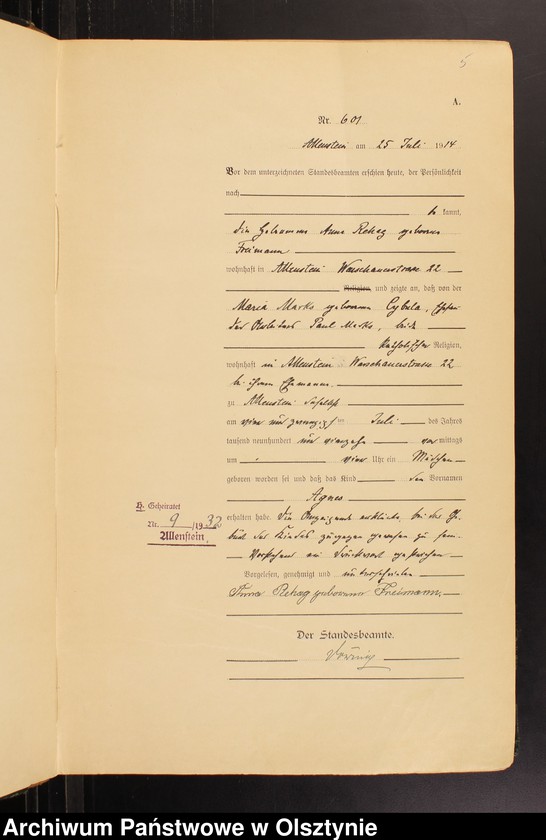 5
A.
Nr. 601
Allenstein am 25 Juli 1914
Vor dem unterzeichneten Standesbeamten erschien heute, der Persönlichkeit
nach
be kannt,
die Hebamme Anna Rehag geborene
Freimann
wohnhaft in Allenstein Warschauerstrasse 22
Religion, und zeigte an, daß von der
Maria Marks geborenen Cybula, Ehefrau
des Arbeiters Paul Marks, beide
katholischer Religion,
wohnhaft in Allenstein Warschauerstrasse 22
bei ihrem Ehemanne,
zu Allenstein daselbst
am vier und zwanzigsten Juli des Jahres
tausend neunhundert und vierzehn vor mittags
um vier Uhr ein Mädchen
geboren worden sei und daß das Kind den Vornamen
Agnes
erhalten habe. Die Anzeigende erklärte, bei der Ge-
burt des Kindes zugegen gewesen zu sein.
Vorstehend ein Druckwort gestrichen
Vorgelesen, genehmigt und unterschrieben
Anna Rehag geborene Freimann.
Der Standesbeamte.
H. Geheiratet
Nr. 9 /1932
Allenstein,
Archiwum Państwowe w Olsztynie